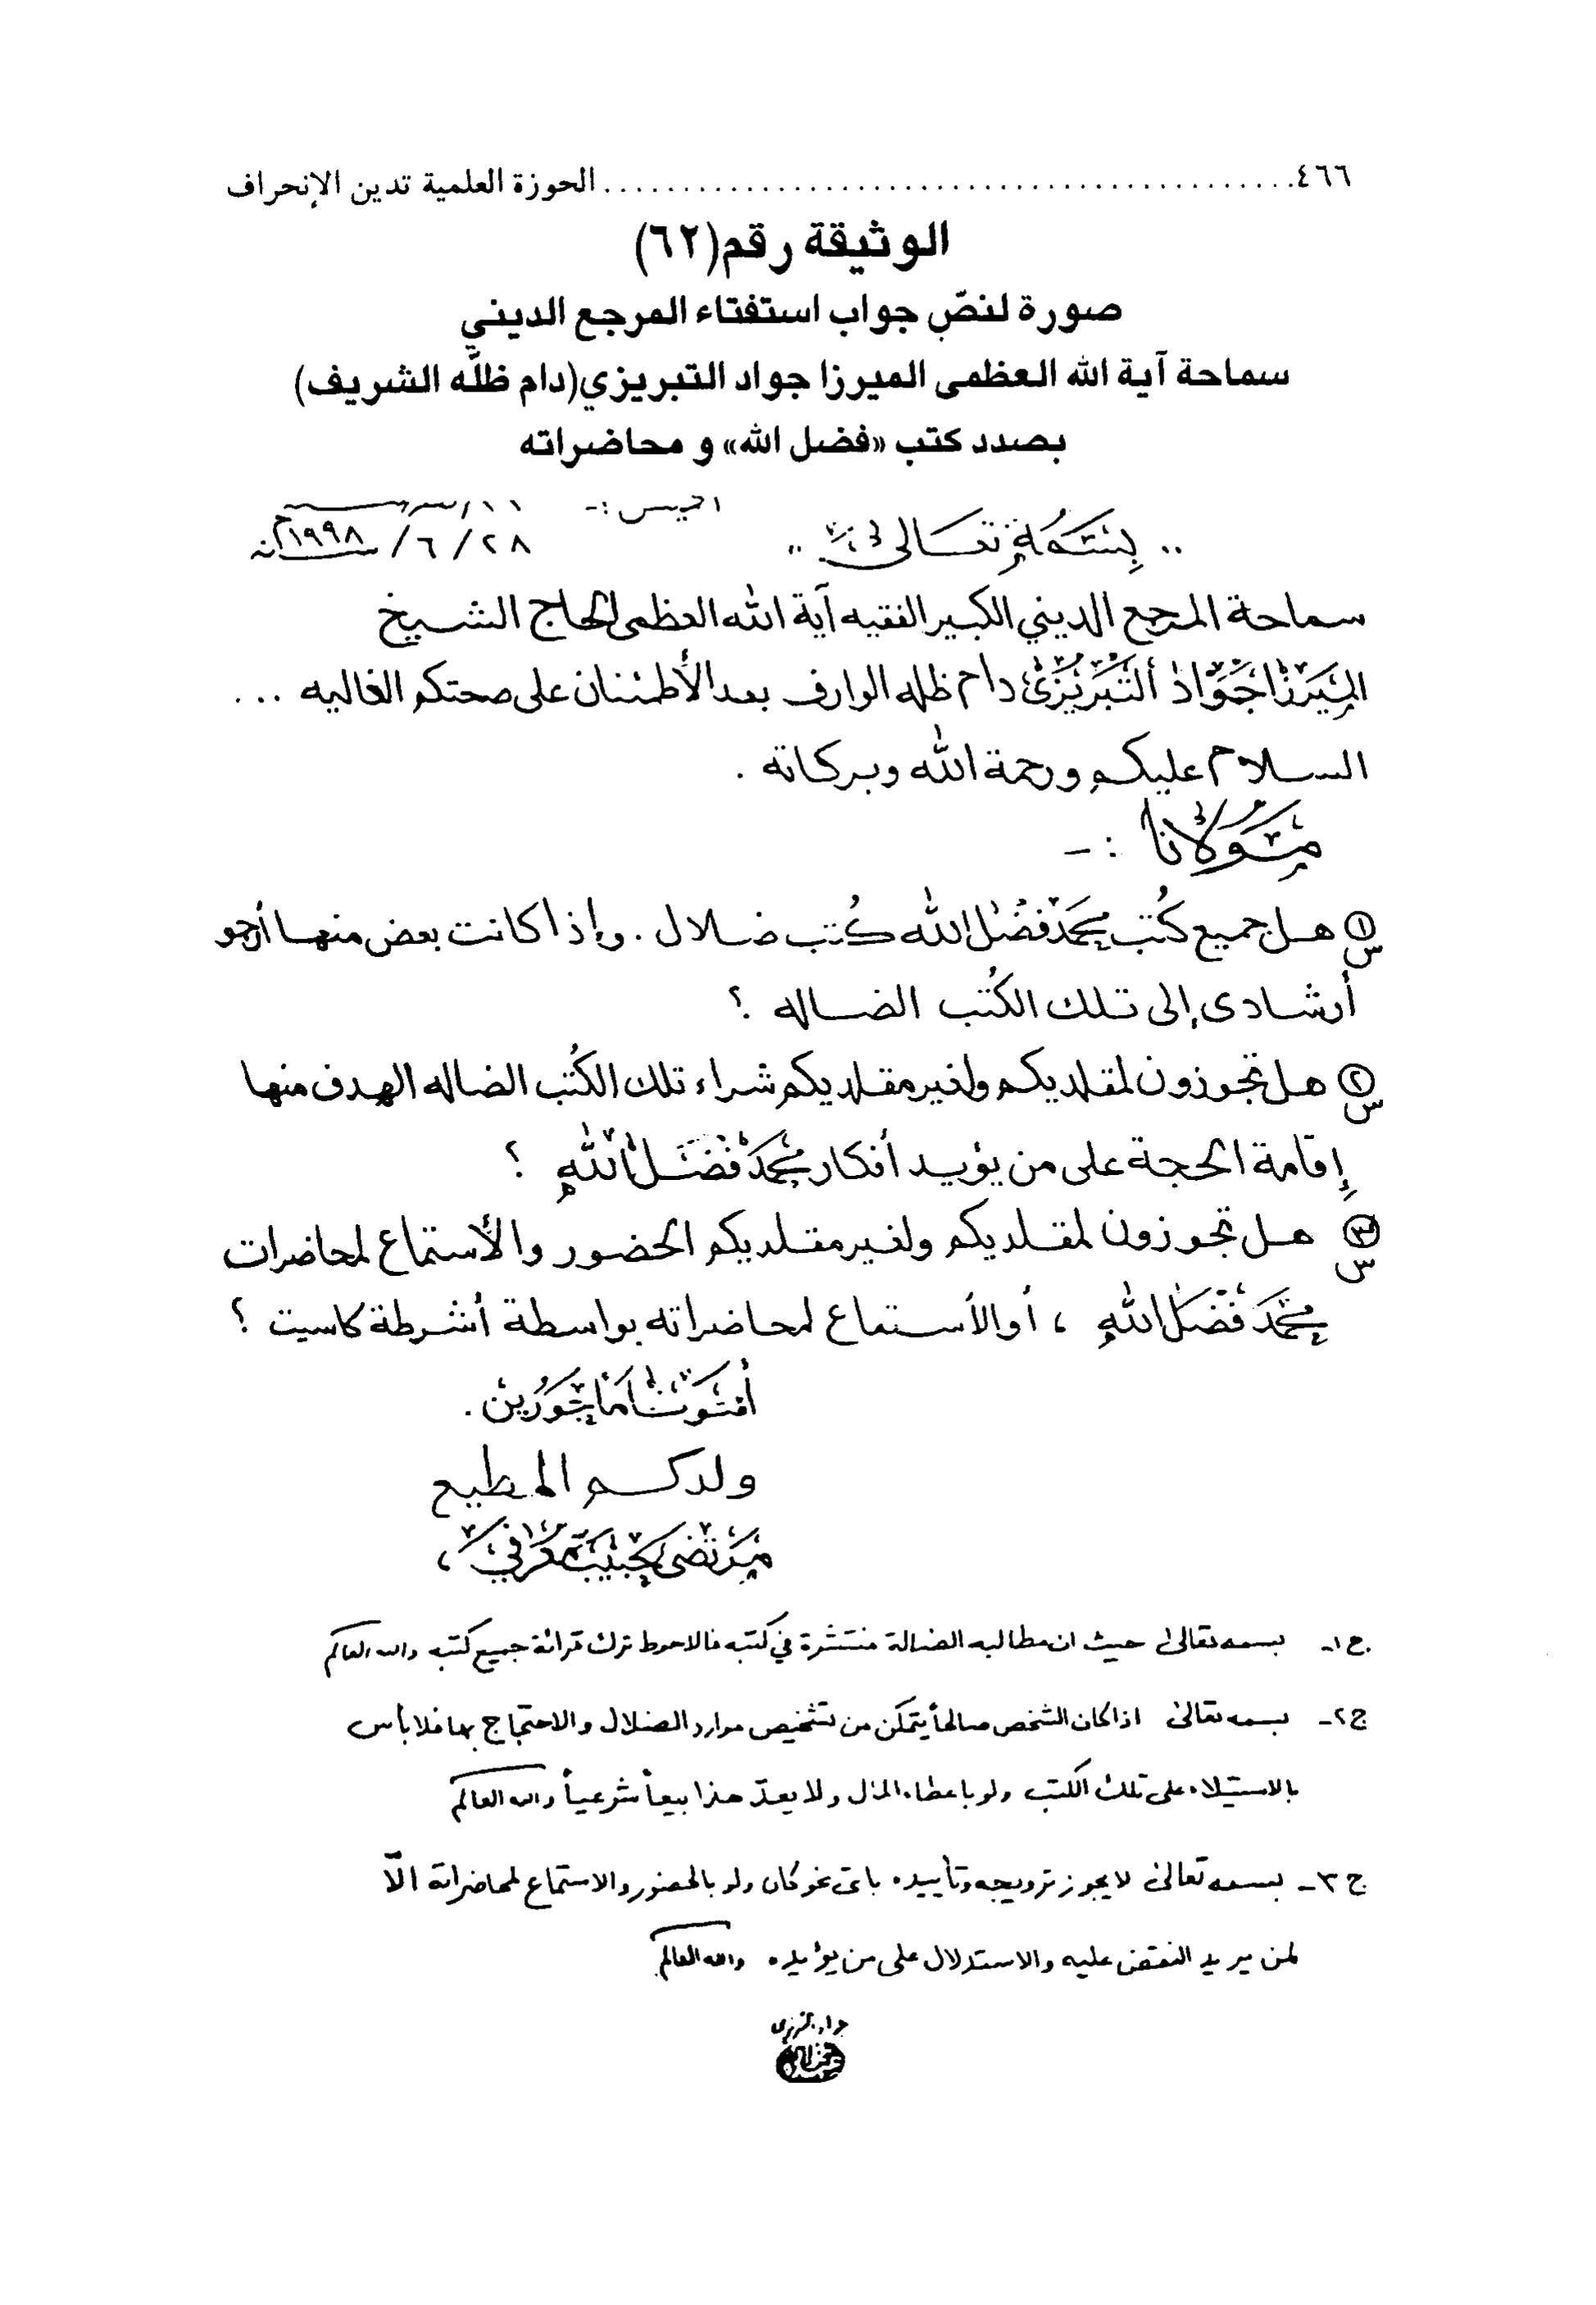 ٤٦٦ ........................................ الحوزة العلمية تدين الإنحراف
الوثيقة رقم (٦٢)
صورة لنصّ جواب استفتاء المرجع الديني
سماحة آية الله العظمى الميرزا جواد التبريزي (دام ظلّه الشريف)
بصدد كتب «فضل الله» و محاضراته
.. بسمه تعالى ..
٢٨/٦/١٩٩٨
سماحة المرجع الديني الكبير الفقيه آية الله العظمى الحاج الشيخ
الميرزا جواد التبريزي دام ظله الوارف بعد الأطمئنان على صحتكم الغاليه ...
السلام عليكم ورحمة الله وبركاته .
مولانا : -
س١ هل جميع كُتب محمد فضل الله كُتب ضلال . وإذا كانت بعض منها أرجو
أرشادي إلى تلك الكُتب الضاله ؟
س٢ هل تجوزون لمقلديكم ولغير مقلديكم شراء تلك الكُتب الضاله الهدف منها
إقامة الحجة على من يؤيد أفكار محمد فضل الله ؟
س٣ هل تجوزون لمقلديكم ولغير مقلديكم الحضور والأستماع لمحاضرات
محمد فضل الله ، أو الأستماع لمحاضراته بواسطة أشرطة كاسيت ؟
أفتونا مأجورين .
ولدكم المطيع
مرتضى حبيب معرفي
ج١- بسمه تعالى حيث ان مطالبه الضالة منتشرة في كتبه فالاحوط ترك قرائة جميع كتبه والله العالم
ج٢- بسمه تعالى اذا كان الشخص صالحاً يتمكن من تشخيص موارد الضلال والاحتجاج بها فلا بأس
بالاستيلاء على تلك الكتب ولو باعطاء المال ولا يعدّ هذا بيعاً شرعياً والله العالم
ج٣- بسمه تعالى لا يجوز ترويجه وتأييده باي نحو كان ولو بالحضور والاستماع لمحاضراته الّا
لمن يريد النقض عليه والاستدلال على من يؤيده والله العالم
جواد التبريزي